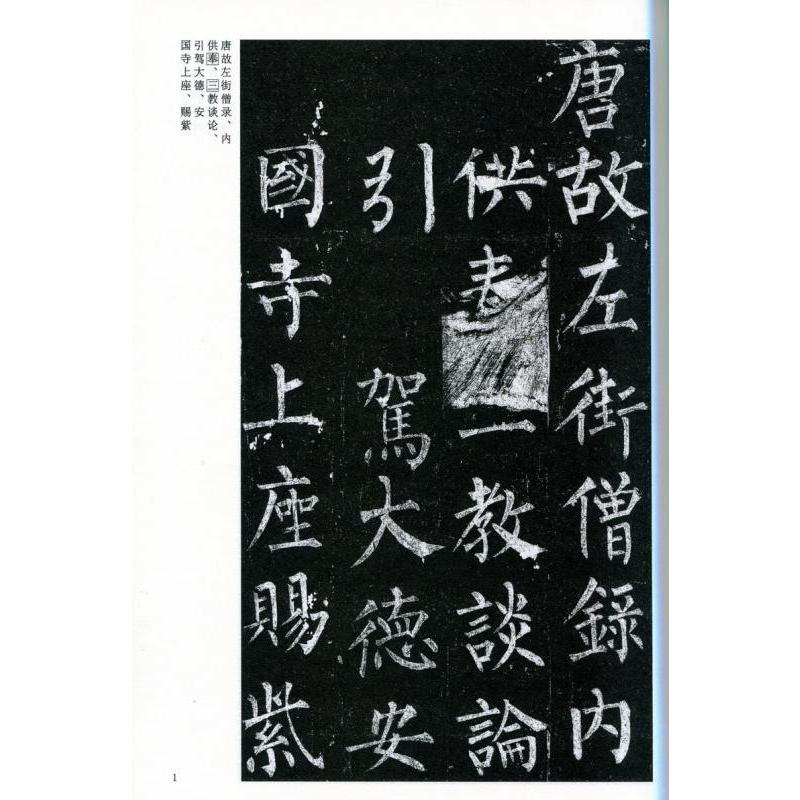 唐故左街僧錄内
供奉三教談論
引駕大德安
國寺上座賜紫
唐故左街僧录、内
供奉、三教谈论、
引驾大德、安
国寺上座、赐紫
1